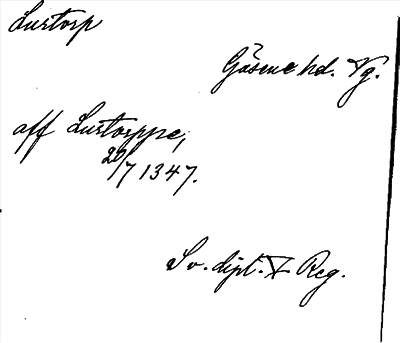 Lurtorp
Gäsene hd. Vg.
aff Lurtorppe,
20/7 1347.
Sv. dipl. X Reg.